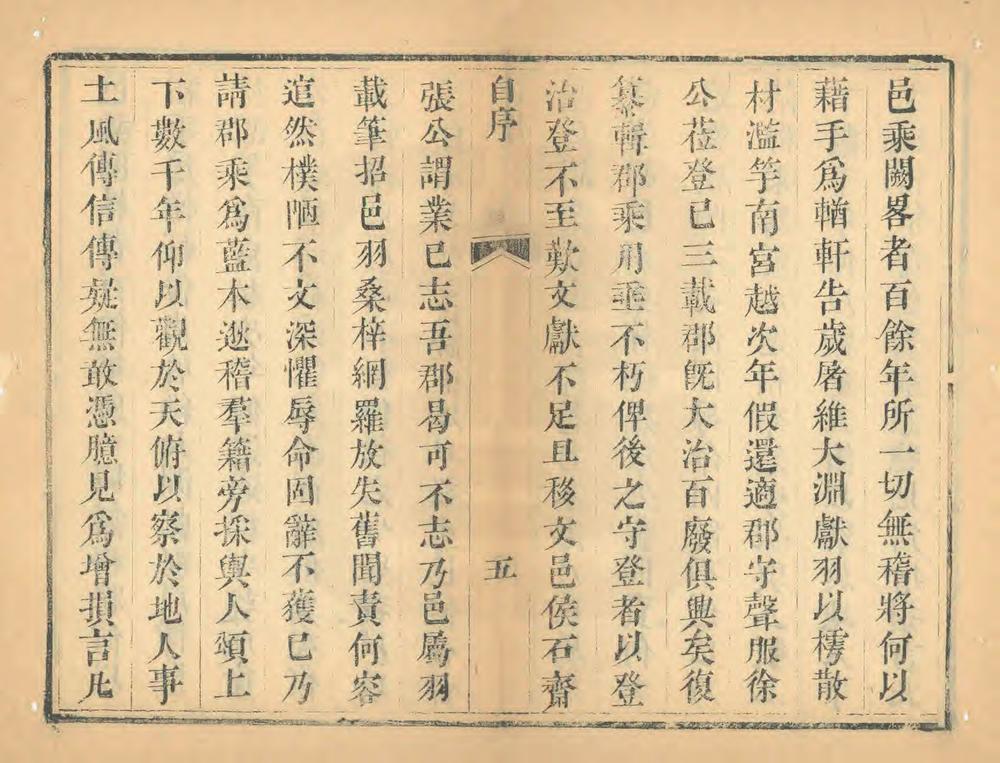 邑乘闕畧者百餘年所一切無稽將何以
藉手爲輶軒告歲屠維大淵獻羽以樗散
材濫竽南宮越次年假還適郡守聲服徐
公莅登已三載郡旣大治百廢俱興矣復
纂輯郡乘用垂不朽俾後之守登者以登
治登不至歎文獻不足且移文邑侯石齋
自序
五
張公謂業已志吾郡曷可不志乃邑屬羽
載筆招邑羽桑梓網羅放失舊聞責何容
逭然樸陋不文深懼辱命固辭不獲已乃
請郡乘爲藍本逖稽羣籍旁採輿人頌上
下數千年仰以觀於天俯以察於地人事
土風傳信傳疑無敢憑臆見爲增損言凡